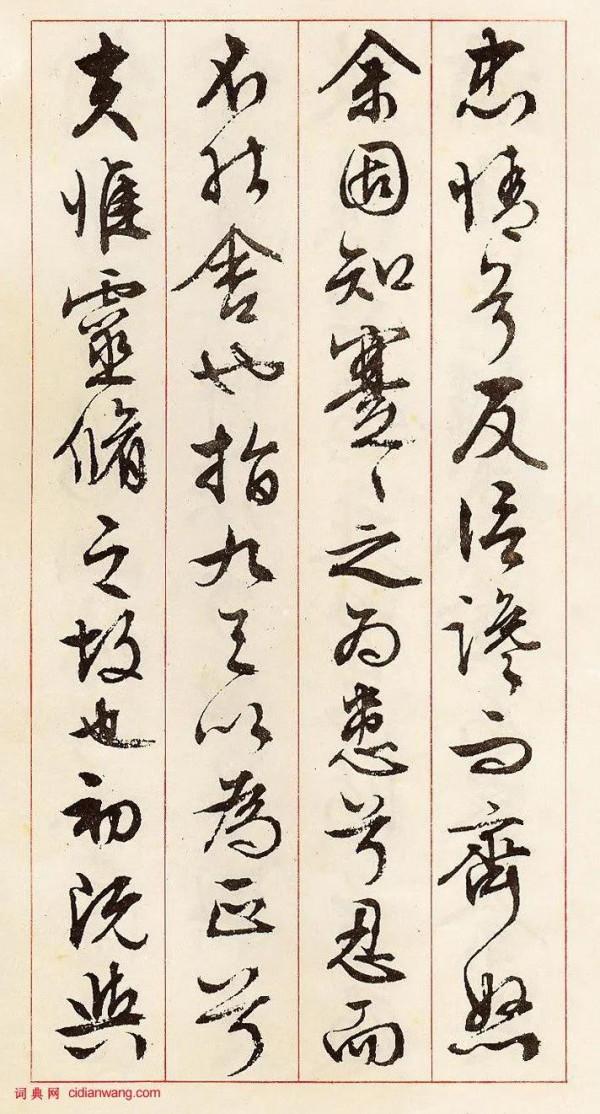 忠情兮反信讒而齊怒
余固知謇〻之為患兮忍而
不能舍也指九天以為正兮
夫惟靈脩之故也初既與
词典网 cidianwang.com